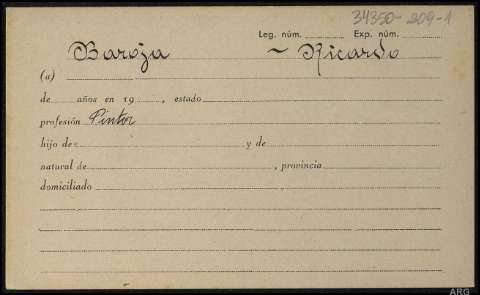 34350-209-1
Leg. núm. Exp. núm.
Baroja ~ Ricardo
(a)
de años en 19 , estado
profesión Pintor
hijo de y de
natural de , provincia
domiciliado
ARG